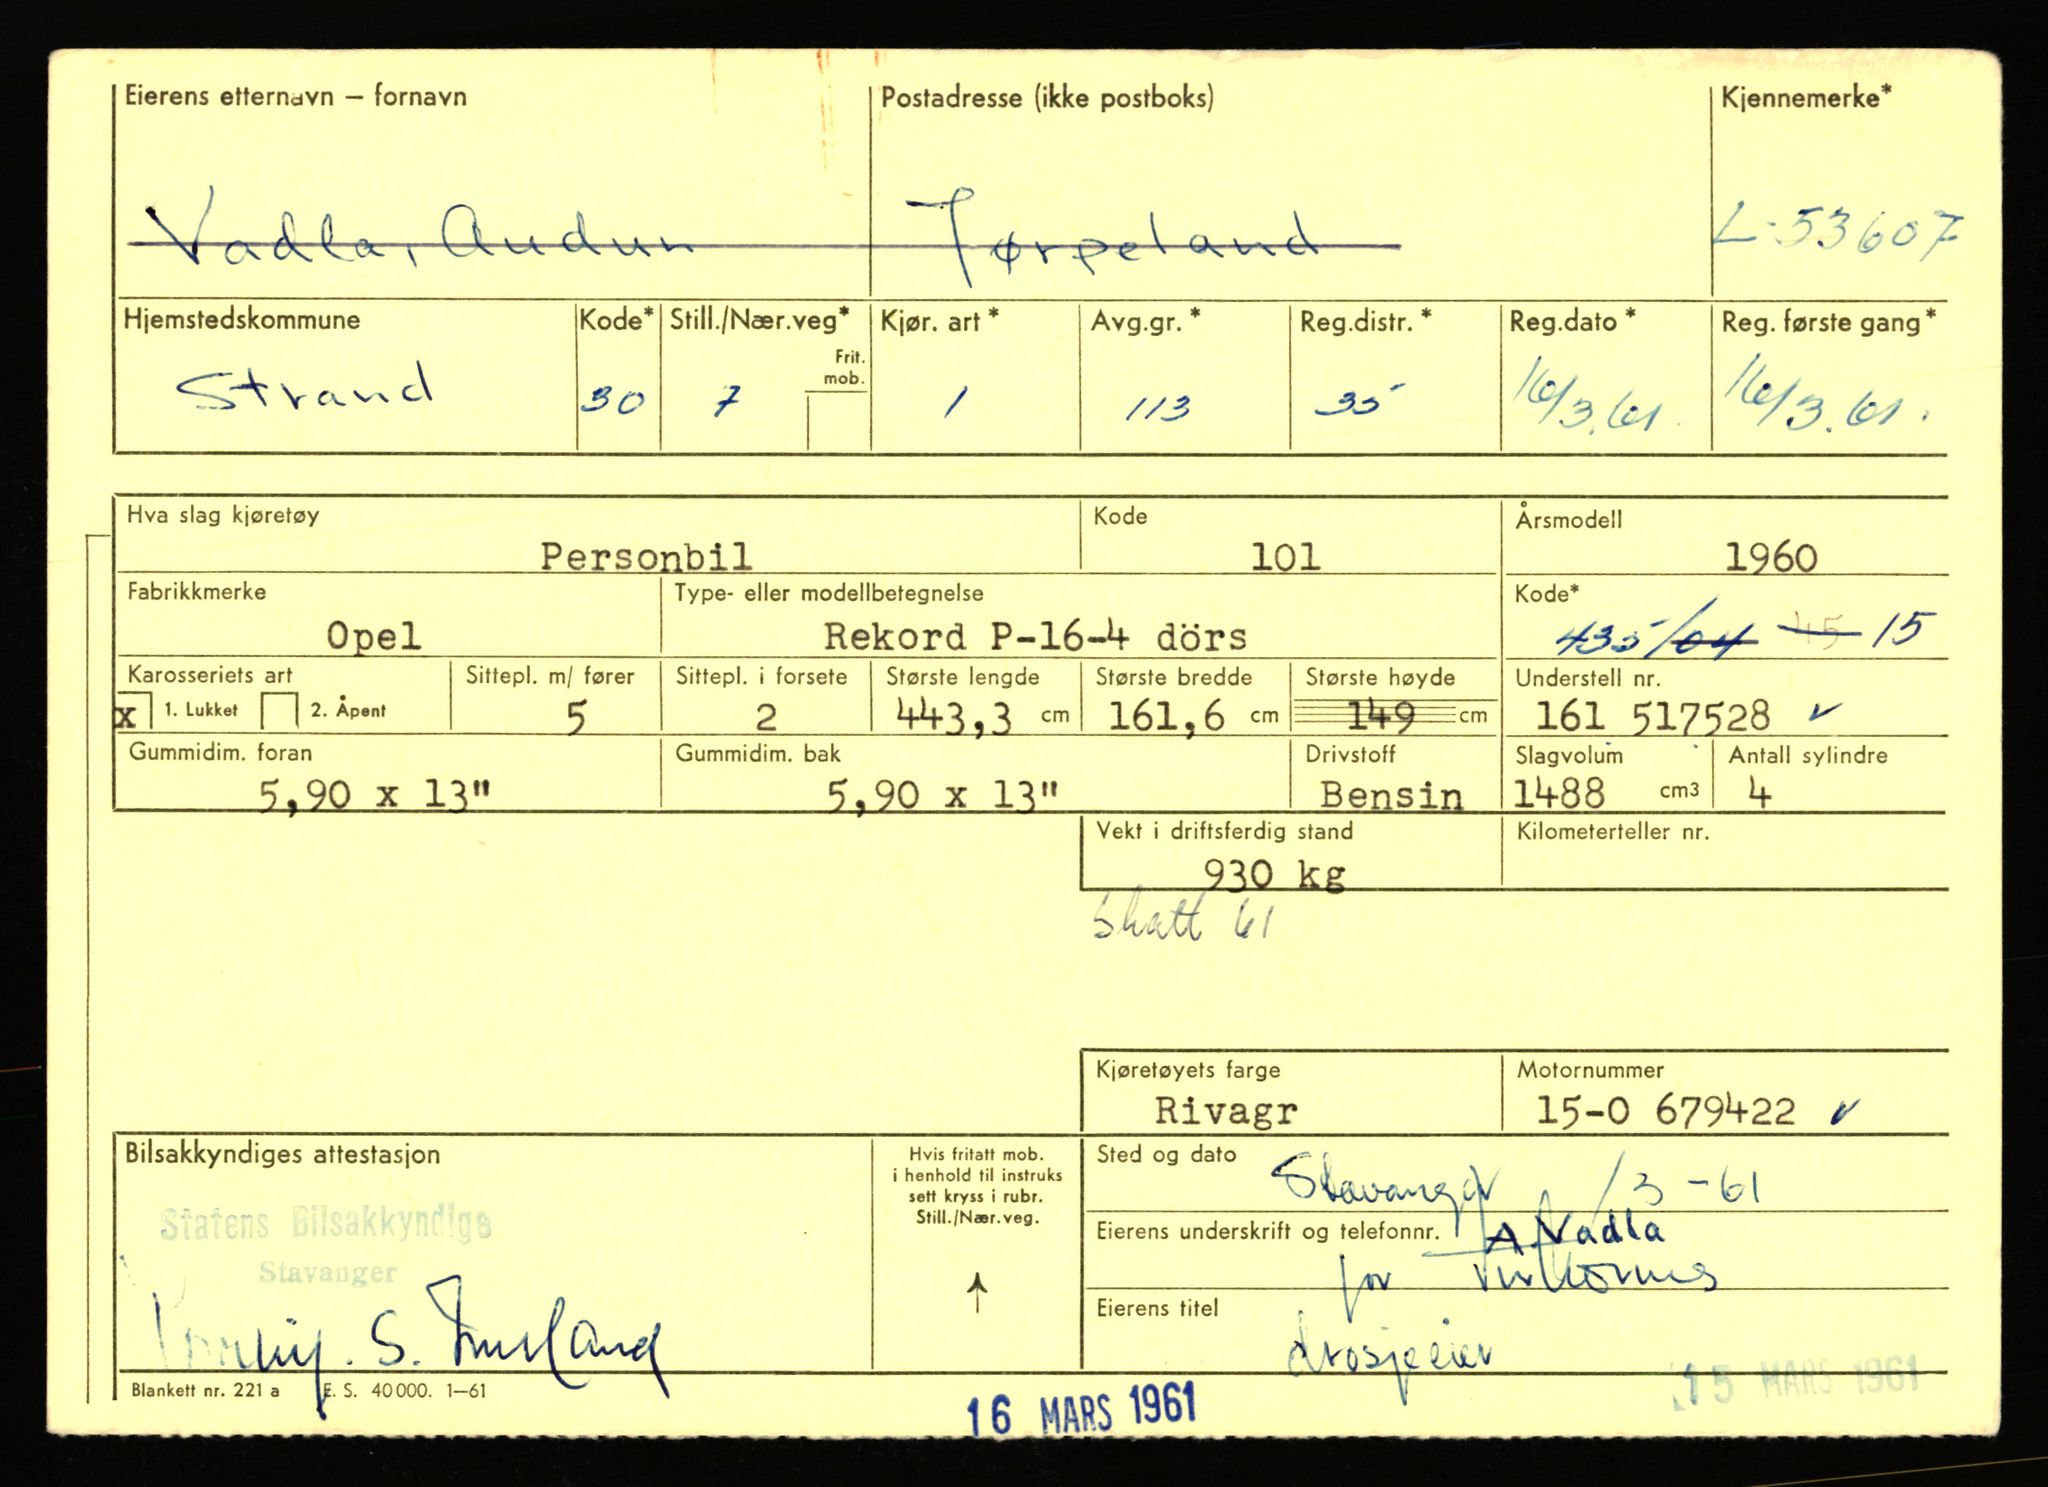 Eierens etternavn – fornavn Postadresse (ikke postboks) Kjennemerke*
Vadla, Audun Jørpeland L-53607
Hjemstedskommune Kode* Still./Nær.veg* Kjør. art* Avg.gr.* Reg.distr.* Reg.dato* Reg. første gang*
Frit. mob.
Strand 30 7 1 113 35 16/3.61. 16/3.61.
Hva slag kjøretøy Kode Årsmodell
Personbil 101 1960
Fabrikkmerke Type- eller modellbetegnelse Kode*
Opel Rekord P-16-4 dörs 435/04 45 15
Karosseriets art Sittepl. m/ fører Sittepl. i forsete Største lengde Største bredde Største høyde Understell nr.
x 1. Lukket 2. Åpent 5 2 443,3 cm 161,6 cm 149 cm 161 517528 ✓
Gummidim. foran Gummidim. bak Drivstoff Slagvolum Antall sylindre
5,90 x 13" 5,90 x 13" Bensin 1488 cm3 4
Vekt i driftsferdig stand Kilometerteller nr.
930 kg
Skatt 61
Kjøretøyets farge Motornummer
Rivagr 15-0 679422 ✓
Bilsakkyndiges attestasjon
Hvis fritatt mob.
i henhold til instruks
sett kryss i rubr.
Still./Nær.veg.
↑
Sted og dato
Stavanger /3-61
Statens Bilsakkyndige
Stavanger
Eierens underskrift og telefonnr. A Vadla
for
Eierens titel
S.
drosjeeier
Blankett nr. 221 a E. S. 40 000. 1–61
15 MARS 1961
16 MARS 1961